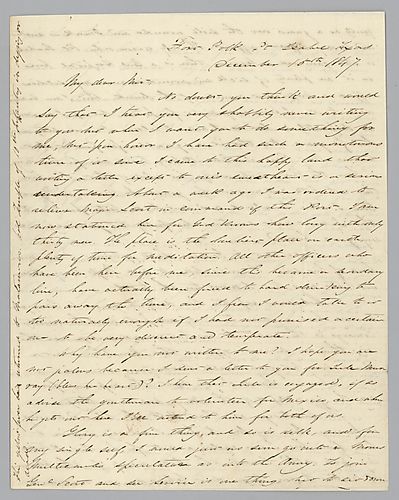 Fort Polk Pt Isabel Texas
December 15th 1847.
My dear Mic-
No doubt, you think and would
say that I treat you very shabbily never writing
to you but when I want you to do something for
me, but 'pon honor I have had such a monotonous
time of it since I came to this happy land that
writing a letter except to one's sweetheart is a serious
undertaking. About a week ago I was ordered to
relieve Major Scott in command of this Post. I am
now stationed here for God knows how long with only
thirty men. The place is the dullest place on earth
plenty of time for meditation. All the officers who
have been here before me, since this became a
line, have actually been forced to hard drinking to
pass away the time, and I fear I would take to it
too naturally enough if I had not promised a certain
one to be very discreet and temperate.
Why have you not written to me? I hope you are
not jealous because I sent a letter to you for Julia
(bless her heart)? I hear that Julia is engaged, if so
advise the gentleman to volunteer for Mexico and when
he gets out here I'll attend to him for both of us.
Glory is a fine thing, and so is silk, and for
my single self I would just as soon go into a
speculation as into the Army. To join
Genl Scott and see service is one thing, but to sit down